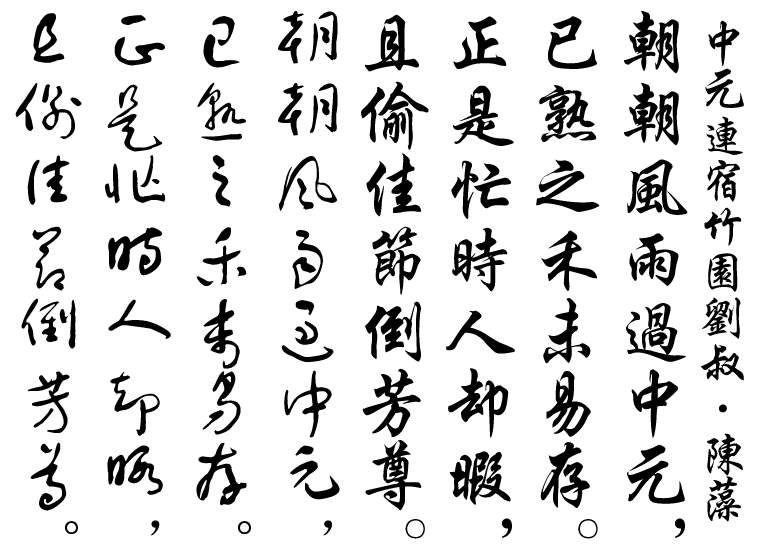 中元連宿竹園劉叔·陳藻
朝朝風雨過中元，
已熟之禾未易存。
正是忙時人却暇，
且偷佳節倒芳尊。
朝朝風雨過中元，
已熟之禾未易存。
正是忙時人却暇，
且偷佳節倒芳尊。